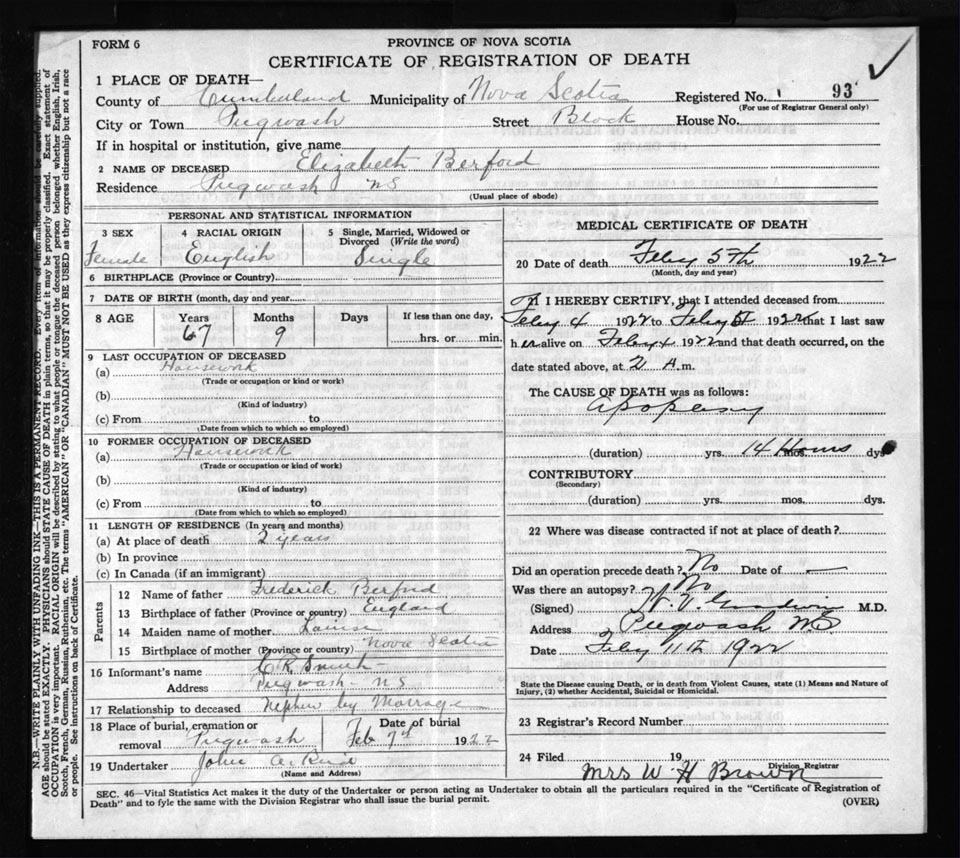 FORM 6
PROVINCE OF NOVA SCOTIA
CERTIFICATE OF REGISTRATION OF DEATH
1 PLACE OF DEATH—
County of Cumberland Municipality of Nova Scotia Registered No. 93
(For use of Registrar General only)
City or Town Pugwash Street Block House No.
If in hospital or institution, give name
2 NAME OF DECEASED Elizabeth Berford
Residence Pugwash NS
(Usual place of abode)
PERSONAL AND STATISTICAL INFORMATION
3 SEX 4 RACIAL ORIGIN 5 Single, Married, Widowed or Divorced (Write the word)
Female English Single
6 BIRTHPLACE (Province or Country)
7 DATE OF BIRTH (month, day and year)
8 AGE Years Months Days If less than one day,
67 9 hrs. or min.
9 LAST OCCUPATION OF DECEASED
(a) Housework
(Trade or occupation or kind or work)
(b)
(Kind of industry)
(c) From to
(Date from which to which so employed)
10 FORMER OCCUPATION OF DECEASED
(a) Housework
(Trade or occupation or kind of work)
(b)
(Kind of industry)
(c) From to
(Date from which to which so employed)
11 LENGTH OF RESIDENCE (In years and months)
(a) At place of death 2 years
(b) In province
(c) In Canada (if an immigrant)
Parents
12 Name of father Frederick Berford
13 Birthplace of father (Province or country) England
14 Maiden name of mother Louise
15 Birthplace of mother (Province or country) Nova Scotia
16 Informant's name C K Smith
Address Pugwash - NS
17 Relationship to deceased Nephew by Marrage
18 Place of burial, cremation or removal Pugwash Date of burial Feb 7th 1922
19 Undertaker John A. Reid
(Name and Address)
MEDICAL CERTIFICATE OF DEATH
20 Date of death Feby 5th 1922
(Month, day and year)
21 I HEREBY CERTIFY, that I attended deceased from
Feby 4 1922 to Feby 5 1922 that I last saw
her alive on Feby 4 1922 and that death occurred, on the
date stated above, at 2 A.m.
The CAUSE OF DEATH was as follows:
Apoplexy
(duration) yrs. 14 Hours mos. dys.
CONTRIBUTORY
(Secondary)
(duration) yrs. mos. dys.
22 Where was disease contracted if not at place of death?
Did an operation precede death? No Date of —
Was there an autopsy? No
(Signed) Goodwin M.D.
Address Pugwash NS
Date Feby 11th 1922
State the Disease causing Death, or in death from Violent Causes, state (1) Means and Nature of
Injury, (2) whether Accidental, Suicidal or Homicidal.
23 Registrar's Record Number
24 Filed 19
Division Registrar
Mrs W H Brown
SEC. 46—Vital Statistics Act makes it the duty of the Undertaker or person acting as Undertaker to obtain all the particulars required in the "Certificate of Registration of
Death" and to fyle the same with the Division Registrar who shall issue the burial permit.
(OVER)
N.B.—WRITE PLAINLY WITH UNFADING INK—THIS IS A PERMANENT RECORD. Every item of information should be carefully supplied.
AGE should be stated EXACTLY. PHYSICIANS should STATE CAUSE OF DEATH in plain terms, so that it may be properly classified. Exact statement of
OCCUPATION is very important. RACIAL ORIGIN will be described by stating to what people or tongue the deceased person belonged, whether English, Irish,
Scotch, French, German, Russian, Ruthenian, etc. The terms "AMERICAN" OR "CANADIAN" MUST NOT BE USED as they express citizenship but not a race
or people. See instructions on back of Certificate.